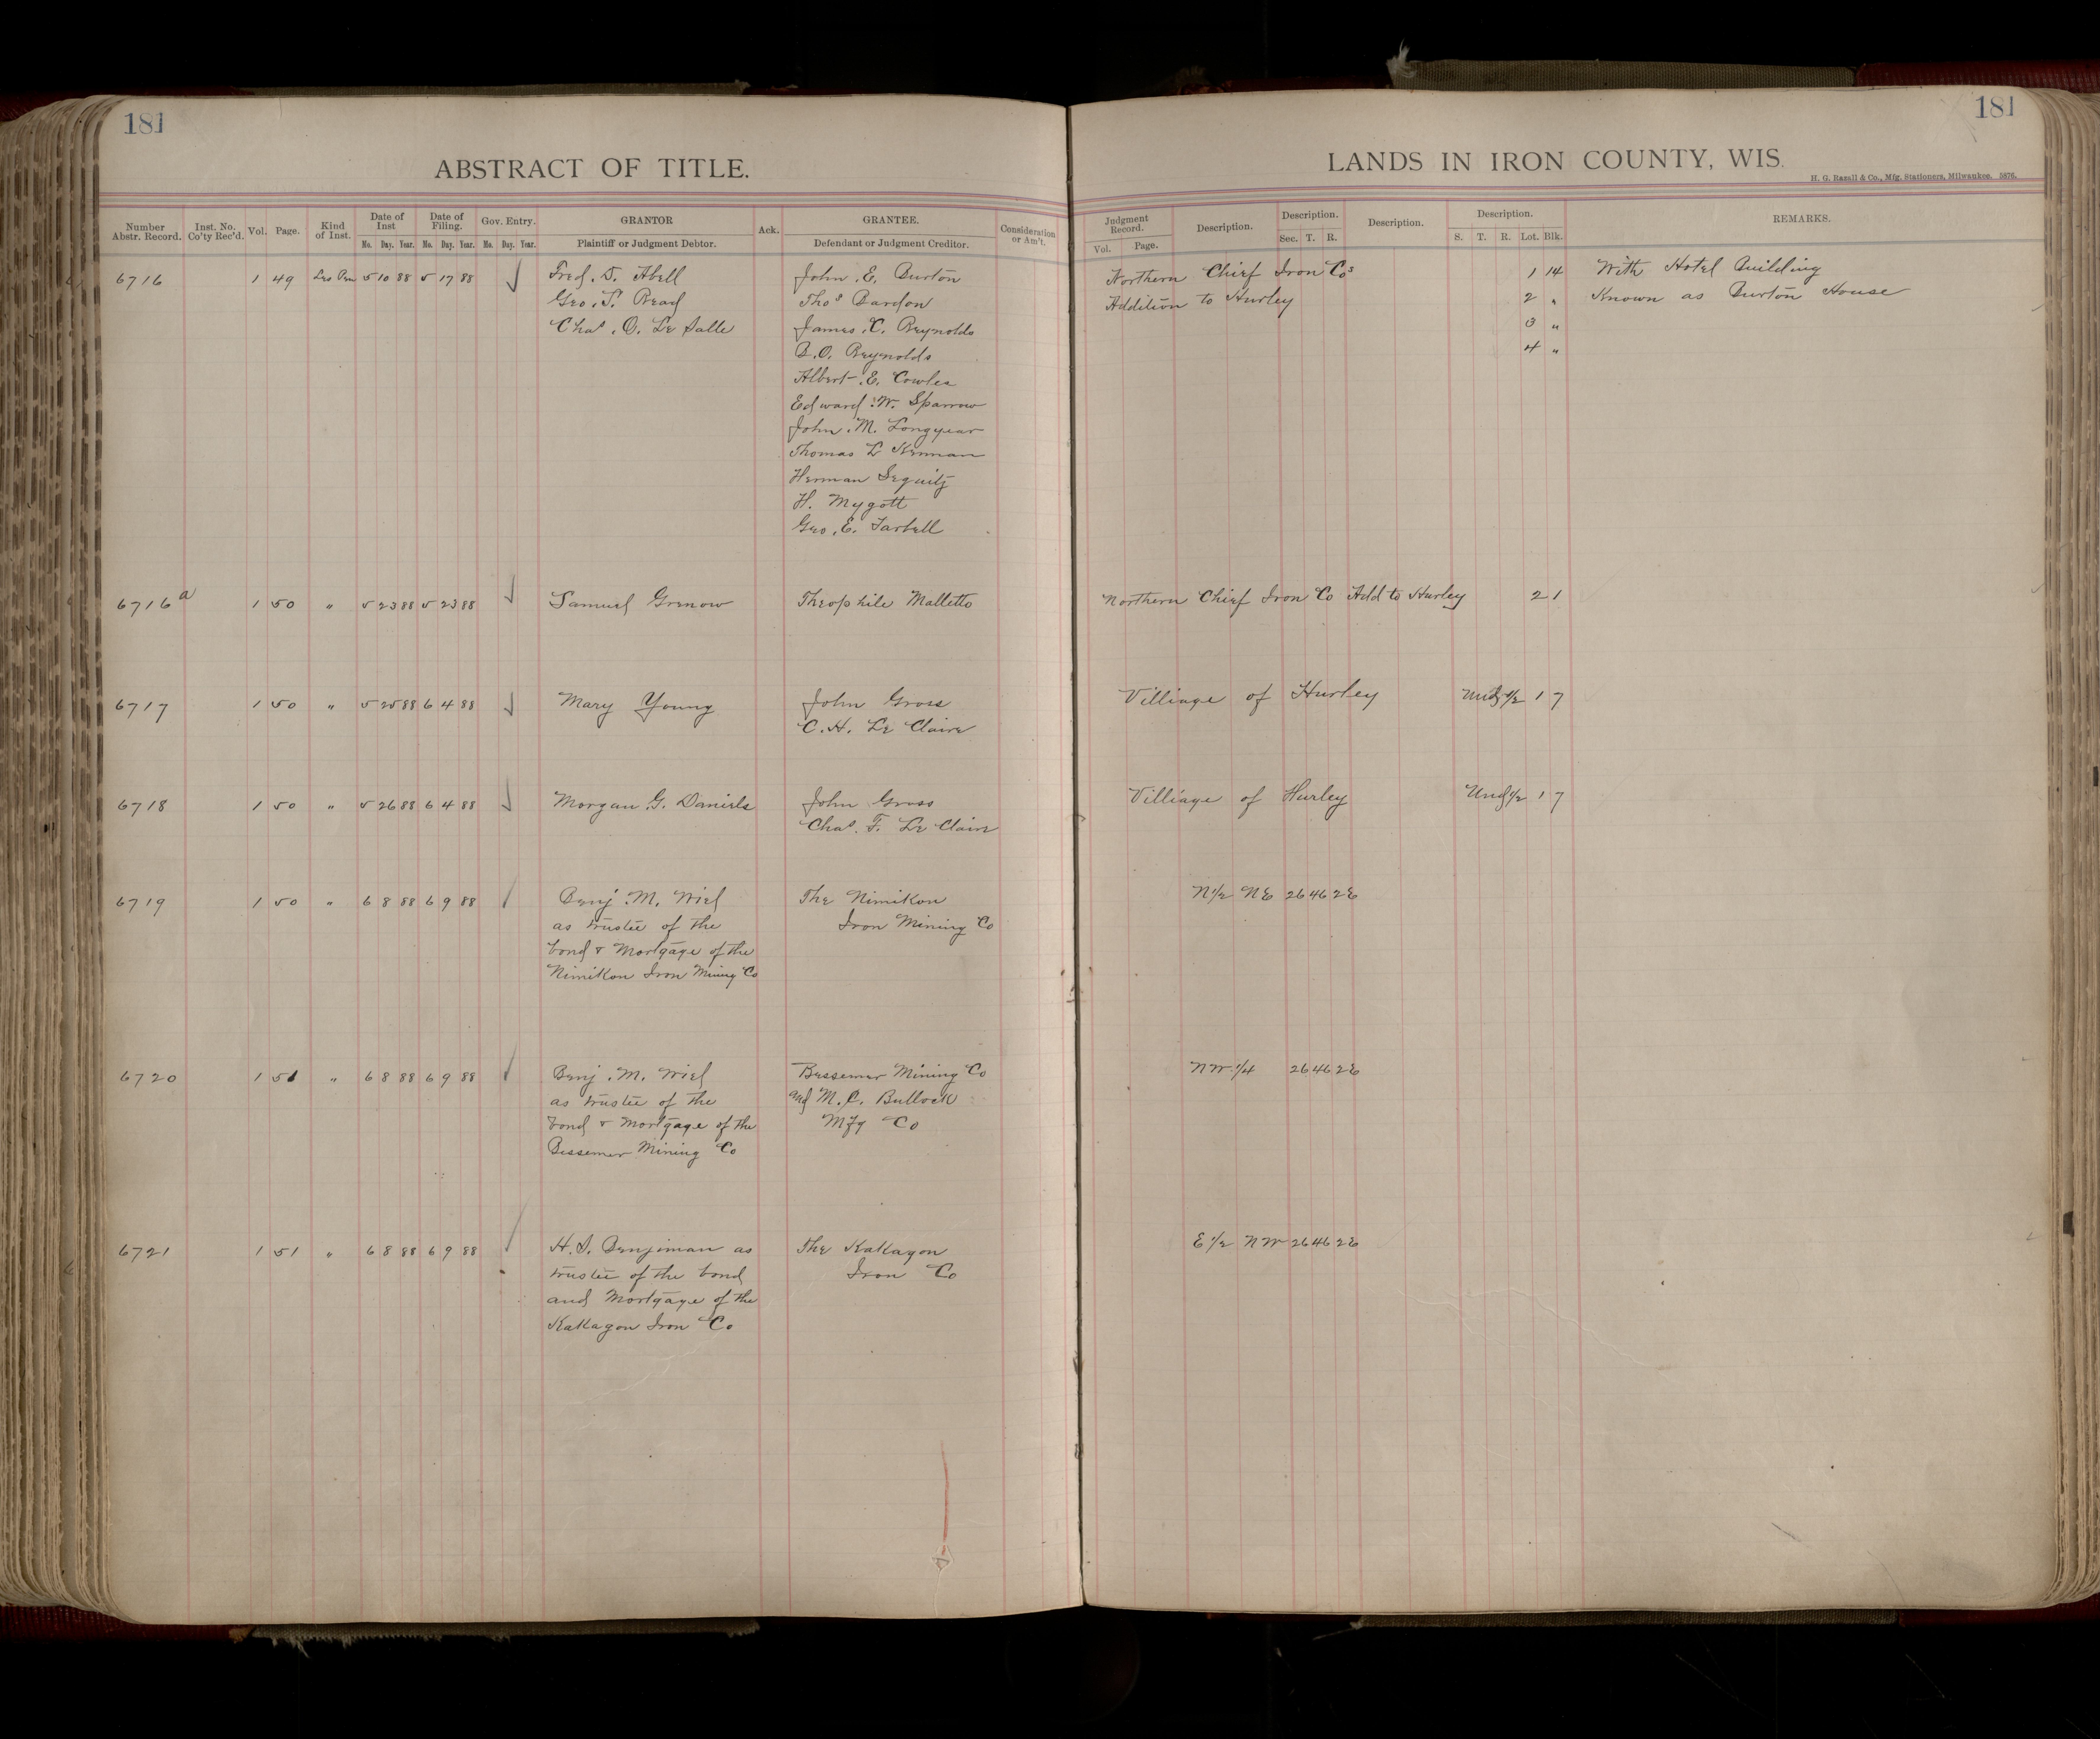 181
181
ABSTRACT OF TITLE.
LANDS IN IRON COUNTY, WIS.
H. G. Razall & Co., Mfg. Stationers, Milwaukee. 5876.
Number Abstr. Record. Inst. No. Co'ty Rec'd. Vol. Page. Kind of Inst. Date of Inst Mo. Day. Year. Date of Filing. Mo. Day. Year. Gov. Entry. Mo. Day. Year. GRANTOR Plaintiff or Judgment Debtor. Ack. GRANTEE. Defendant or Judgment Creditor. Consideration or Am't.
Judgment Record. Vol. Page. Description. Description. Sec. T. R. Description. Description. S. T. R. Lot. Blk. REMARKS.
6716 1 49 Les Pen 5 10 88 5 17 88 Fred. D. Abell John. E. Burton Northern Chief Iron Cos 1 14 With Hotel Building
Geo. T. Read Thos Bardon Addition to Hurley 2 " Known as Burton House
Chas. O. Le Salle James. C. Reynolds 3 "
B. O. Reynolds 4 "
Albert E. Cowles
Edward W. Sparrow
John. M. Longyear
Thomas L Kennan
Herman Segnitz
H. Mygott
Geo. E. Tarbell
6716 a 1 50 " 5 23 88 5 23 88 Samuel Grenow Theophile Malletto Northern Chief Iron Co Add to Hurley 2 1
6717 1 50 " 5 25 88 6 4 88 Mary Young John Gross Villiage of Hurley Und 1/2 1 7
C. H. Le Claire
6718 1 50 " 5 26 88 6 4 88 Morgan G. Daniels John Gross Villiage of Hurley Und 1/2 1 7
Chas. F. Le Clair
6719 1 50 " 6 8 88 6 9 88 Benj. M. Wiel The Nimikon N 1/2 NE 26 46 2E
as trustee of the Iron Mining Co
bond & Mortgage of the
Nimikon Iron Mining Co
6720 1 51 " 6 8 88 6 9 88 Benj. M. Wiel Bessemer Mining Co NW 1/4 26 46 2E
as trustee of the and M. C. Bullock
bond & Mortgage of the Mfg Co
Bessemer Mining Co
6721 1 51 " 6 8 88 6 9 88 H. S. Benjiman as The Kakagon E 1/2 NW 26 46 2E
trustee of the bond Iron Co
and Mortgage of the
Kakagon Iron Co